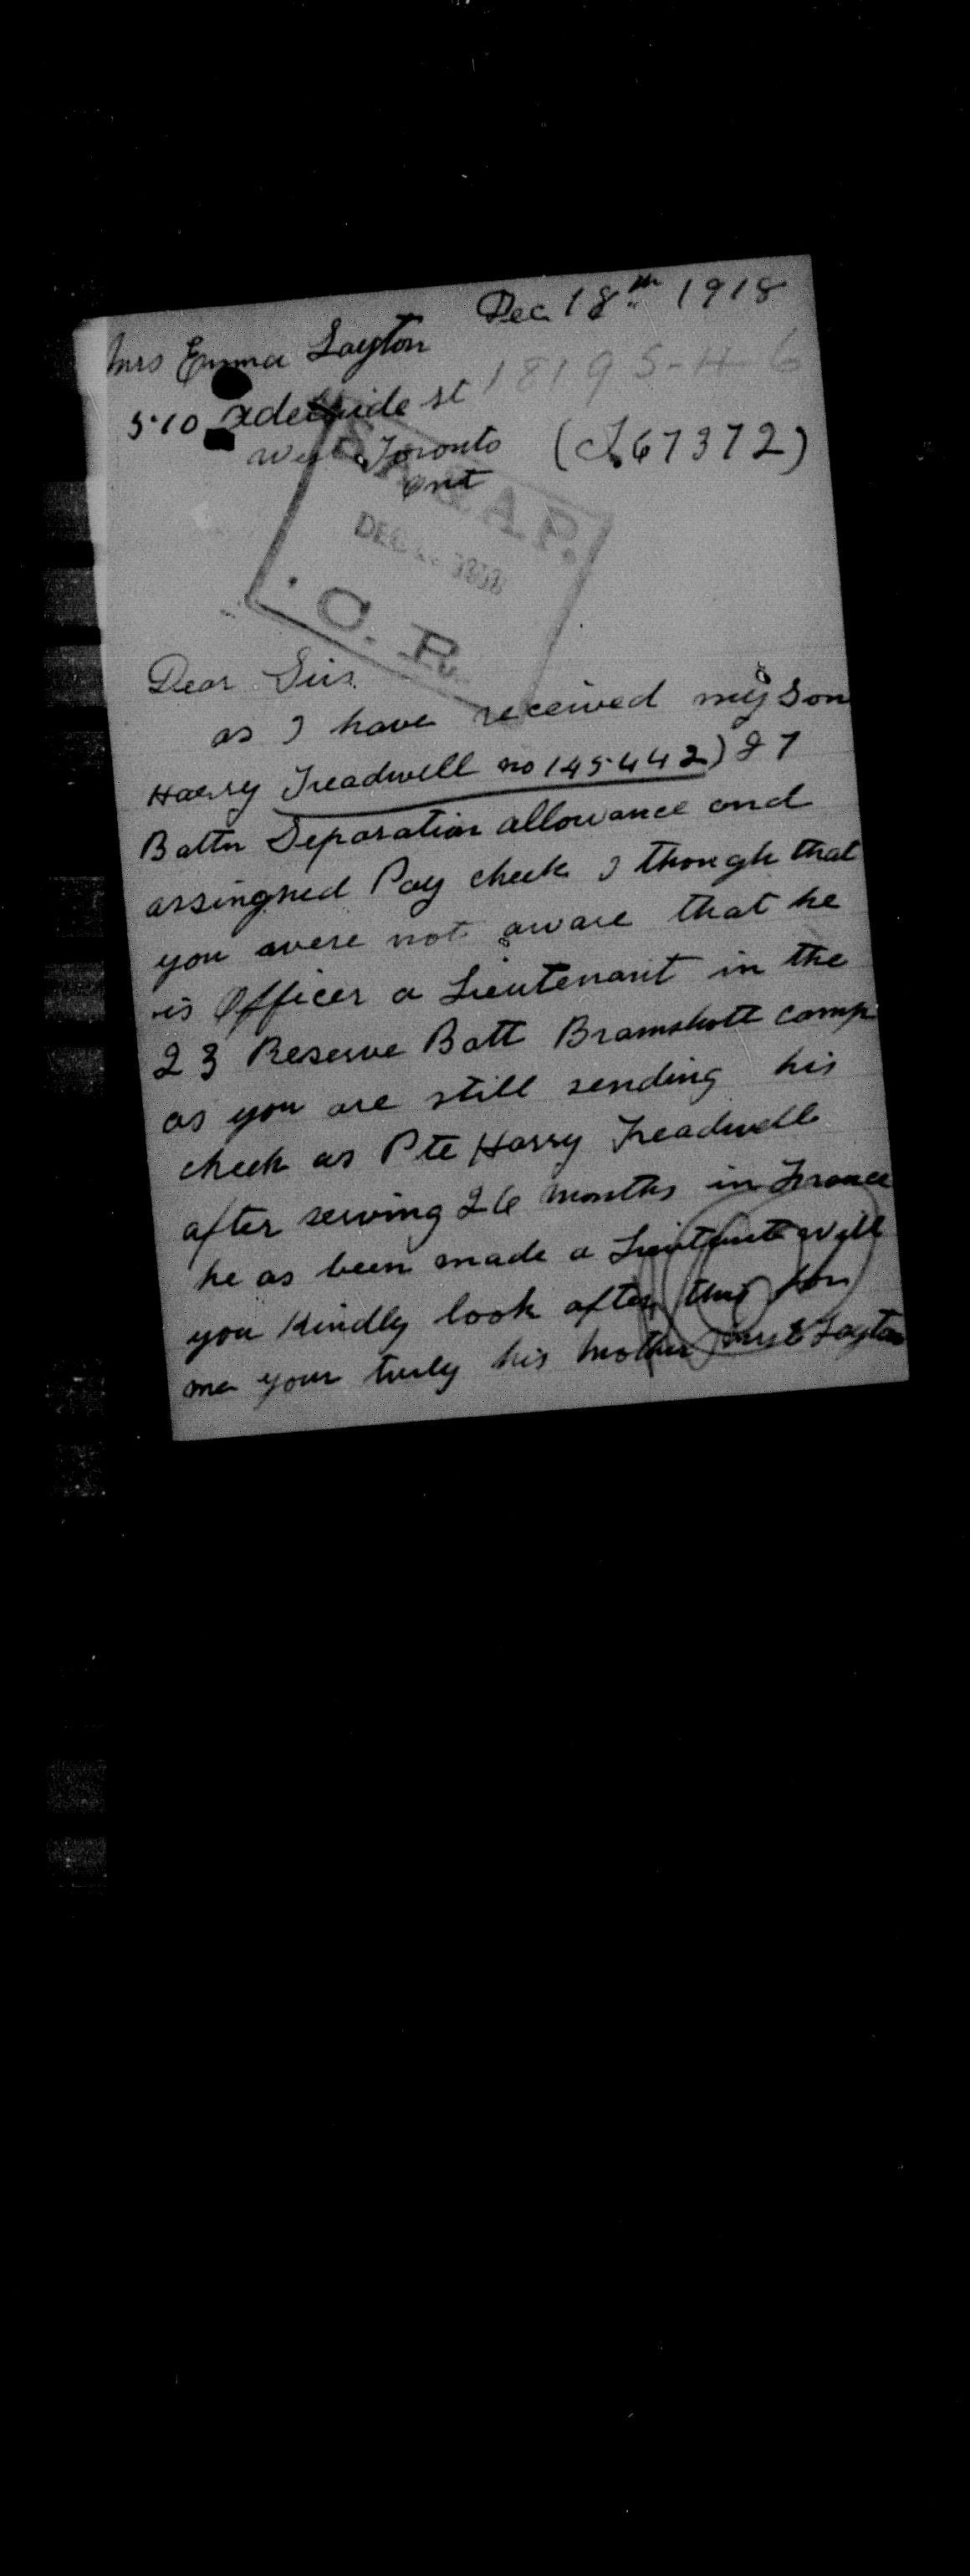 Dec 18th 1918
Mrs Emma Layton
18195-H-6
510 Adelaide st
West Toronto
Ont
(T.67372)
S.A. & A.P.
DEC 1918
C. R.
Dear Sir
as I have received my Son
Harry Treadwell no 145442) 27
Battn Separation allowance and
assinghed Pay check I though that
you were not aware that he
is Officer a Lieutenant in the
23 Reserve Batt Bramshott camp
as you are still sending his
check as Pte Harry Treadwell
after serving 26 months in France
he as been made a Lieutenant will
you Kindly look after this for
me your truly his Mother Mrs E Layton